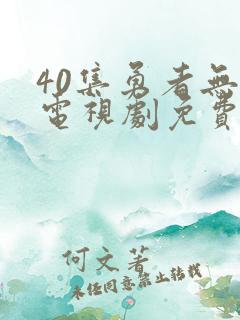 40集勇者無
電視劇免費
何文著
未經同意禁止轉載